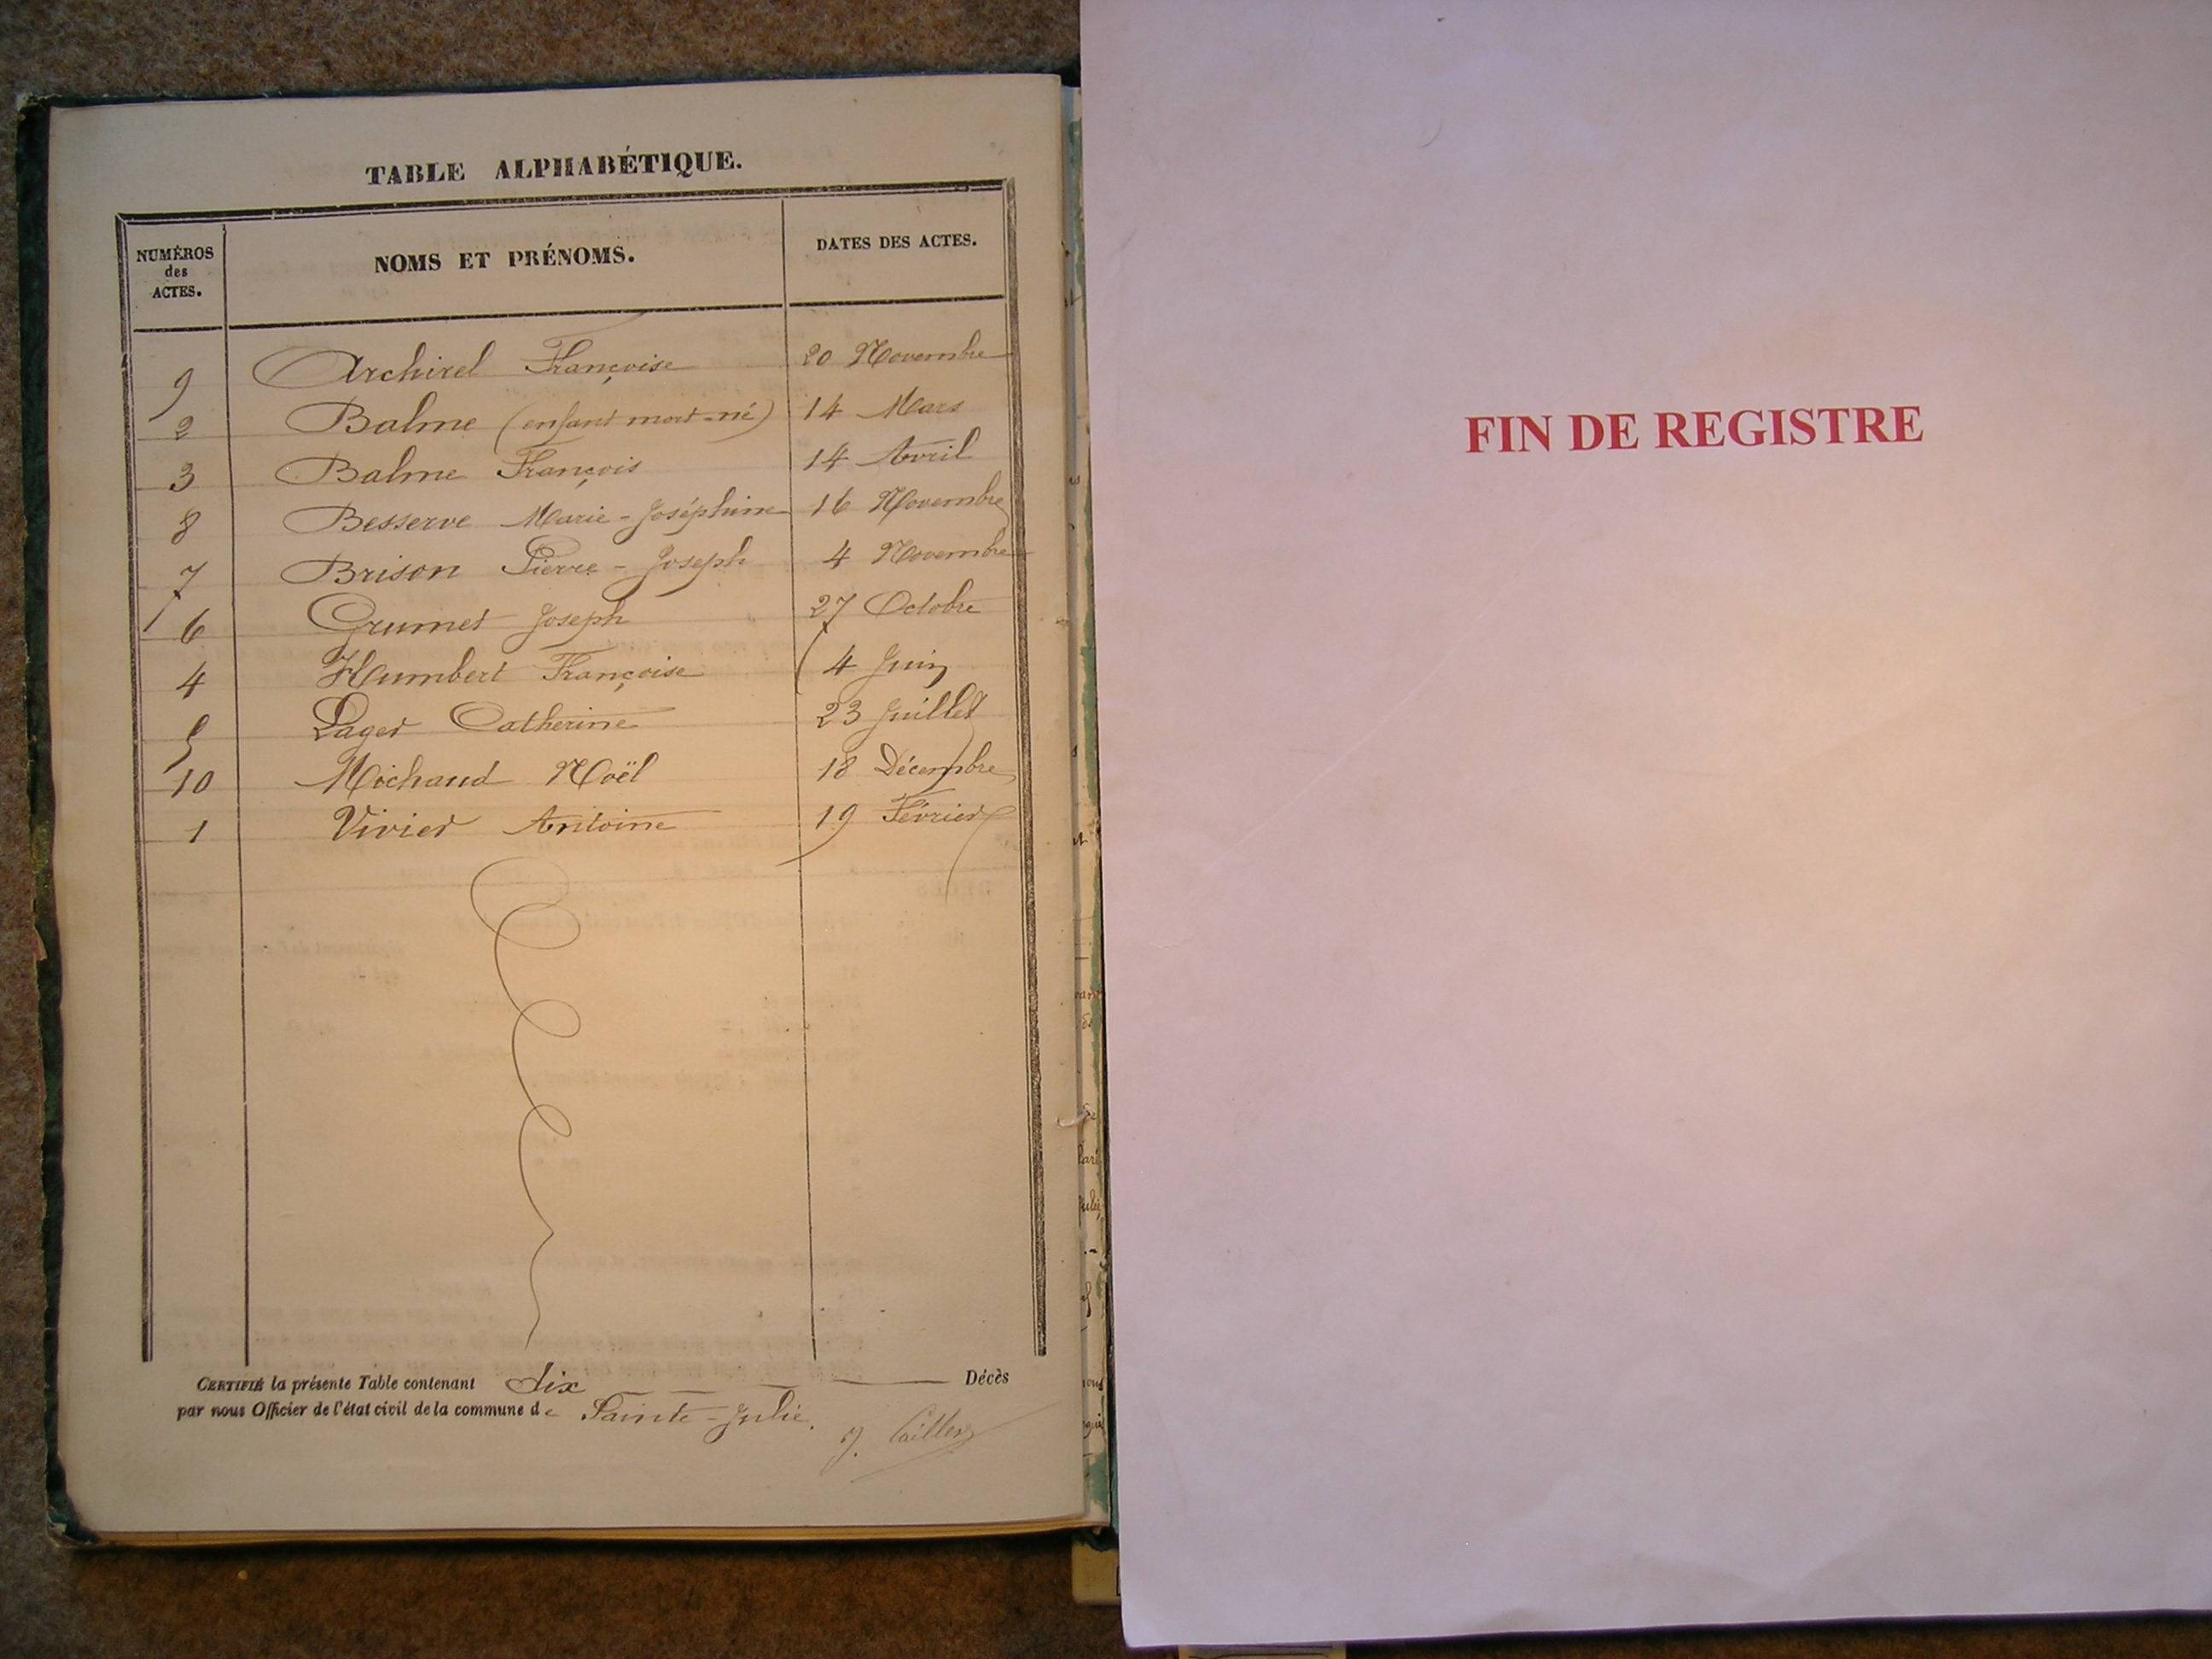 TABLE ALPHABÉTIQUE.
NUMÉROS des ACTES. NOMS ET PRÉNOMS. DATES DES ACTES.
9 Archirel Françoise 20 Novembre
2 Balme (enfant mort-né) 14 Mars
3 Balme François 14 Avril
8 Besserve Marie-Joséphine 16 Novembre
7 Brison Pierre-Joseph 4 Novembre
6 Grumet Joseph 27 Octobre
4 Humbert Françoise 4 Juin
5 Lager Catherine 23 Juillet
10 Michaud Noël 18 Décembre
1 Vivier Antoine 19 Février
CERTIFIÉ la présente Table contenant dix Décès
par nous Officier de l'état civil de la commune de Sainte-Julie.
FIN DE REGISTRE